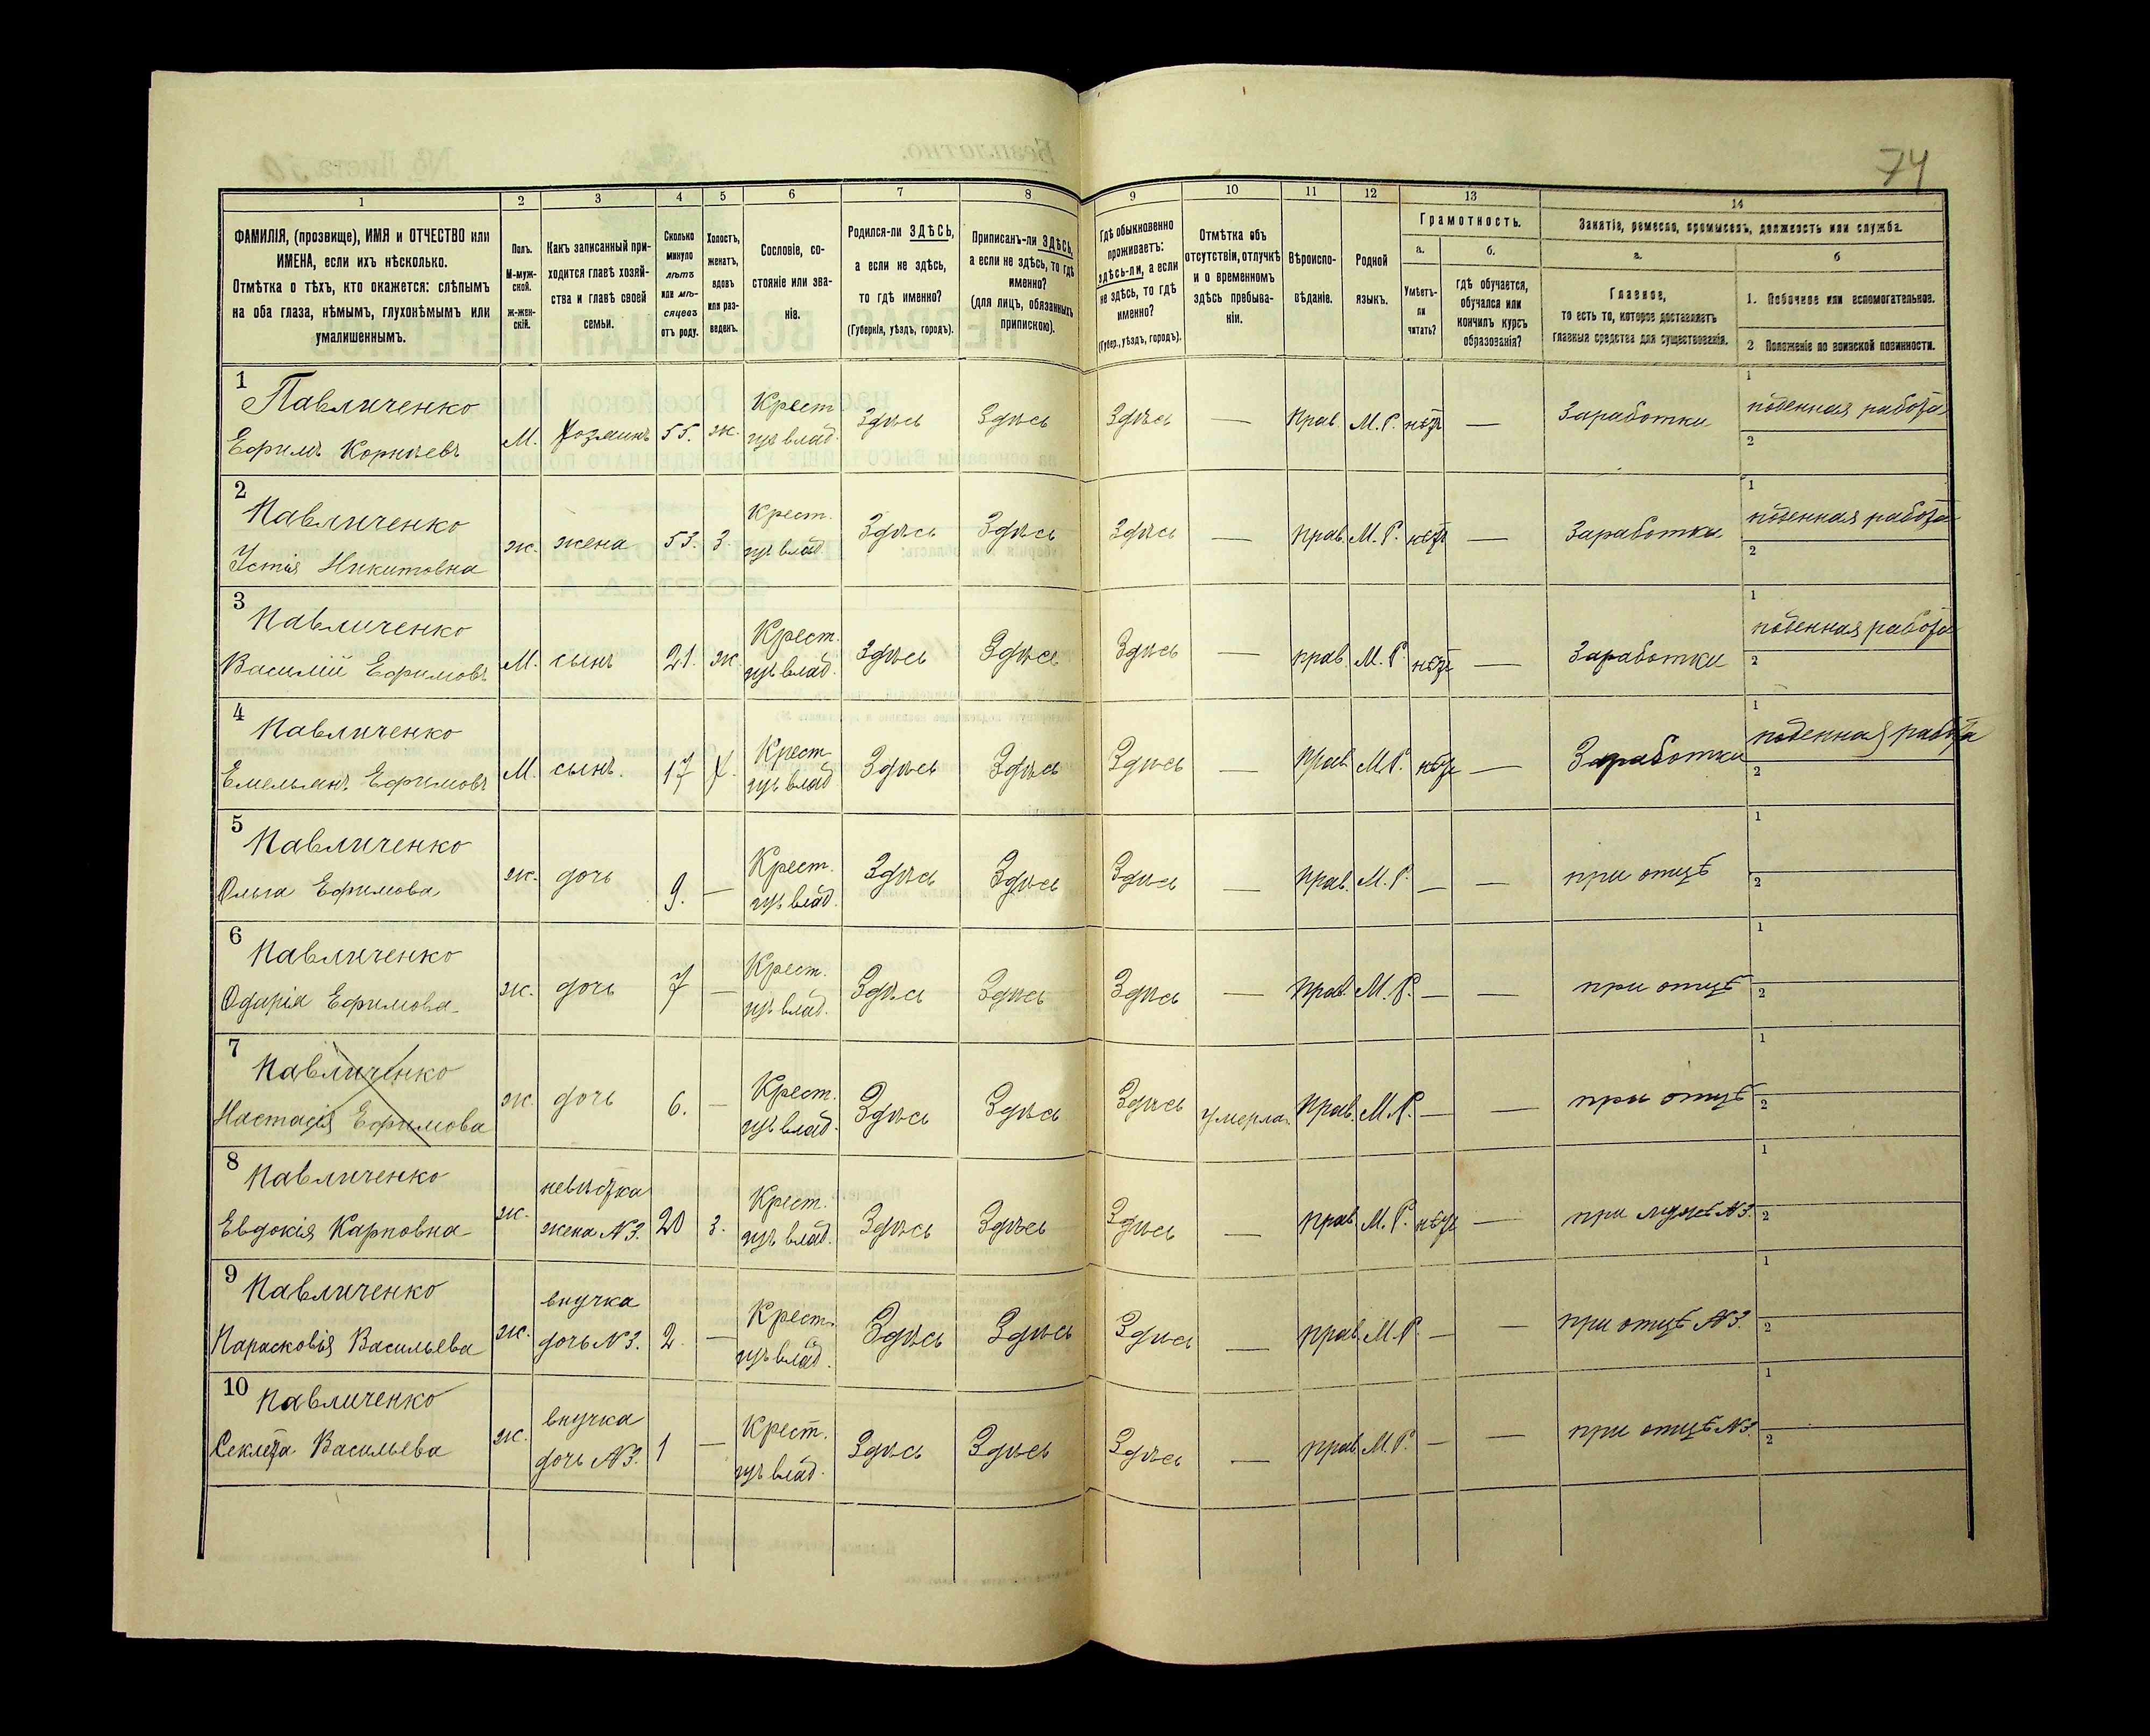 74
1 2 3 4 5 6 7 8 9 10 11 12 13 14
ФАМИЛІЯ, (прозвище), ИМЯ и ОТЧЕСТВО или
ИМЕНА, если ихъ нѣсколько.
Отмѣтка о тѣхъ, кто окажется: слѣпымъ
на оба глаза, нѣмымъ, глухонѣмымъ или
умалишеннымъ.
Полъ.
М-муж-
ской.
ж-жен-
скій.
Какъ записанный при-
ходится главѣ хозяй-
ства и главѣ своей
семьи.
Сколько
минуло
лѣтъ
или мѣ-
сяцевъ
отъ роду.
Холостъ,
женатъ,
вдовъ
или раз-
веденъ.
Сословіе, со-
стояніе или зва-
ніе.
Родился-ли ЗДѢСЬ,
а если не здѣсь,
то гдѣ именно?
(Губернія, уѣздъ, городъ).
Приписанъ-ли ЗДѢСЬ,
а если не здѣсь, то гдѣ
именно?
(для лицъ, обязанныхъ
припискою).
Гдѣ обыкновенно
проживаетъ:
здѣсь-ли, а если
не здѣсь, то гдѣ
именно?
(Губер., уѣздъ, городъ).
Отмѣтка объ
отсутствіи, отлучкѣ
и о временномъ
здѣсь пребыва-
ніи.
Вѣроиспо-
вѣданіе.
Родной
языкъ.
Грамотность.
а.
Умѣетъ-
ли
читать?
б.
гдѣ обучается,
обучался или
кончилъ курсъ
образованія?
Занятіе, ремесло, промыселъ, должность или служба.
а.
Главное,
то есть то, которое доставляетъ
главныя средства для существованія.
б
1. Побочное или вспомогательное.
2 Положеніе по воинской повинности.
1
Павличенко
Ефимъ Корнѣевъ
М. хозяинъ 55. ж. Крест
изъ влад. Здѣсь Здѣсь Здѣсь — Прав М. Р. нѣтъ — Заработки
1 поденная работа
2
2
Павличенко
Устія Никитовна
ж. жена 53. З. Крест.
изъ влад. Здѣсь Здѣсь Здѣсь — прав. М. Р. нѣтъ — Заработки
1 поденная работа
2
3
Павличенко
Василій Ефимовъ
М. сынъ 21. ж. Крест.
изъ влад. Здѣсь Здѣсь Здѣсь — прав. М. Р. нѣтъ — Заработки
1 поденная работа
2
4
Павличенко
Емельянъ Ефимовъ
М. сынъ. 17 х. Крест
изъ влад Здѣсь Здѣсь Здѣсь — Прав М.Р. нѣтъ — Заработки
1 поденная работа
2
5
Павличенко
Ольга Ефимова
ж. дочь 9. — Крест.
изъ влад. Здѣсь Здѣсь Здѣсь — прав. М. Р. — — при отцѣ
1
2
6
Павличенко
Одарія Ефимова
ж. дочь 7 — Крест.
изъ влад. Здѣсь Здѣсь Здѣсь — прав. М. Р. — — при отцѣ
1
2
7
Павличенко
Настасія Ефимова
ж. дочь 6. — Крест.
изъ влад. Здѣсь Здѣсь Здѣсь Умерла. прав. М.Р. — — при отцѣ
1
2
8
Павличенко
Евдокія Карповна
ж. невѣстка
жена №3. 20 з. Крест.
изъ влад. Здѣсь Здѣсь Здѣсь — прав. М. Р. нѣтъ — при мужѣ №3.
1
2
9
Павличенко
Парасковія Васильева
ж. внучка
дочь №3. 2. — Крест.
изъ влад. Здѣсь Здѣсь Здѣсь — прав. М.Р. — — при отцѣ №3.
1
2
10
Павличенко
Секлета Васильева
ж. внучка
дочь №3. 1 — Крест.
изъ влад. Здѣсь Здѣсь Здѣсь — прав. М.Р. — — при отцѣ №3.
1
2